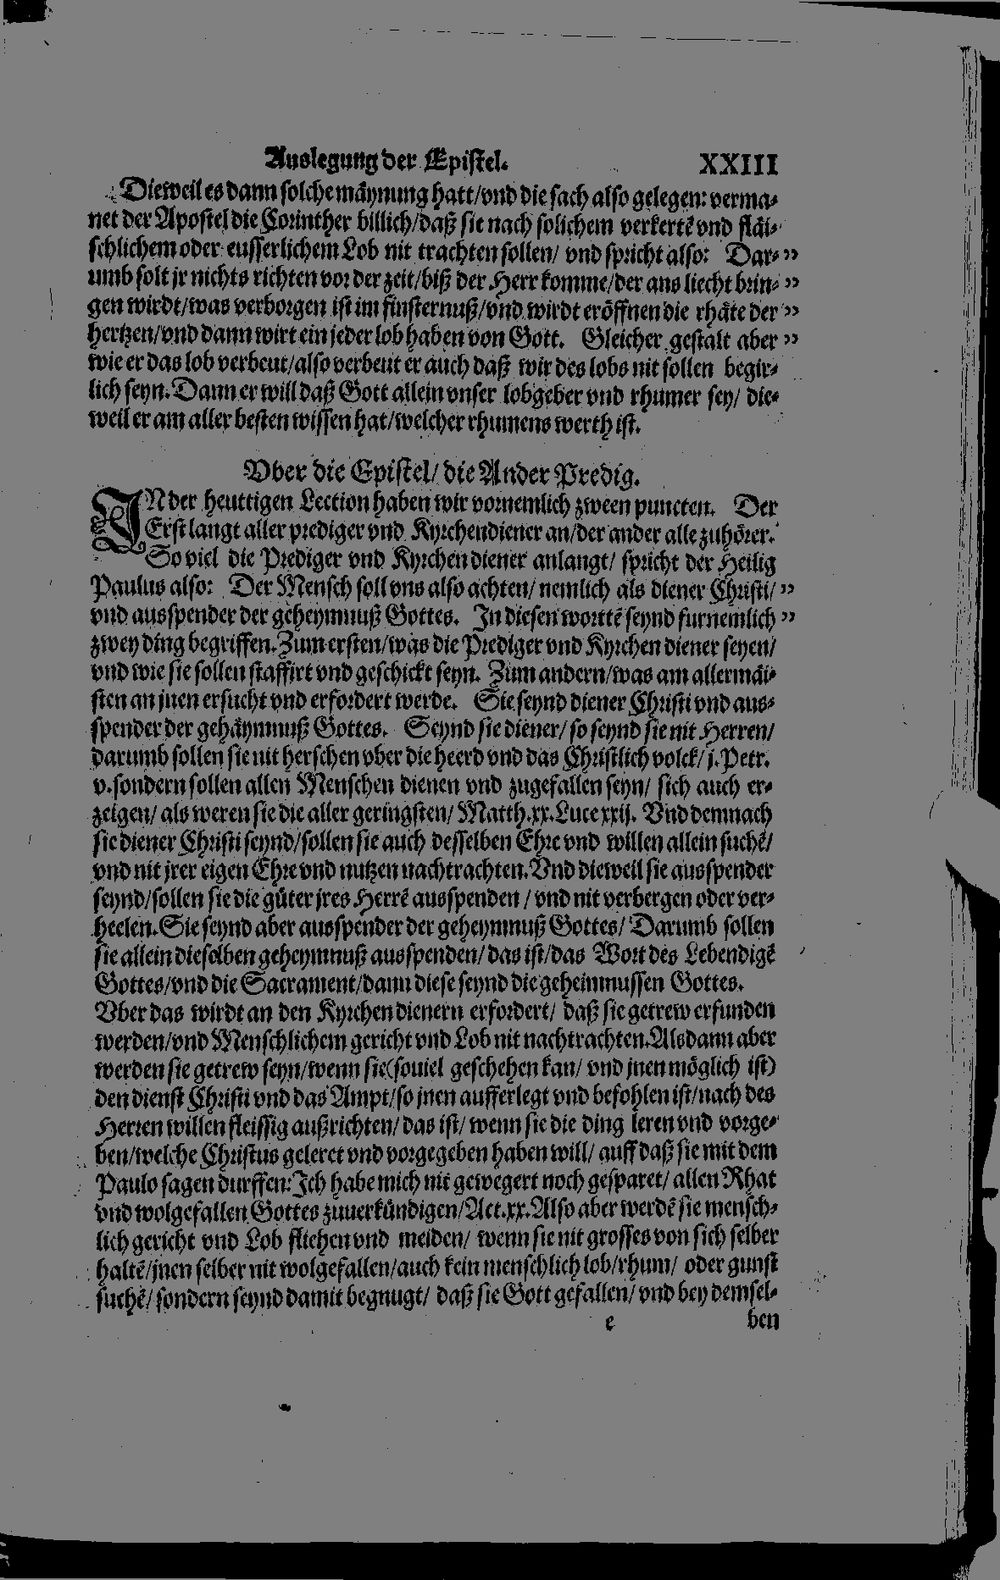 Auslegung der Epistel. XXIII
Dieweil es dann solche mäynung hatt/vnd die sach also gelegen: verma-
net der Apostel die Corinther billich/daß sie nach solichem verkertẽ vnd fläi-
schlichem oder eusserlichem Lob nit trachten sollen/ vnd spricht also: Dar- ”
umb solt jr nichts richten vor der zeit/biß der Herr komme/der ans liecht brin- ”
gen wirdt/was verborgen ist im finsternuß/vnd wirdt eröffnen die rhäte der ”
hertzen/vnd dann wirt ein jeder lob haben von Gott. Gleicher gestalt aber ”
wie er das lob verbeut/also verbeut er auch daß wir des lobs nit sollen begir-
lich seyn. Dann er will daß Gott allein vnser lobgeber vnd rhumer sey/ die-
weil er am aller besten wissen hat/welcher rhumens werth ist.
Vber die Epistel/ die Ander Predig.
IN der heuttigen Lection haben wir vornemlich zween puncten. Der
Erst langt aller prediger vnd Kyrchendiener an/der ander alle zuhörer.
So viel die Prediger vnd Kyrchen diener anlangt/ spricht der Heilig
Paulus also: Der Mensch soll vns also achten/ nemlich als diener Christi/ ”
vnd ausspender der geheymnuß Gottes. In diesen worttẽ seynd furnemlich ”
zwey ding begriffen. Zum ersten/was die Prediger vnd Kyrchen diener seyen/
vnd wie sie sollen staffirt vnd geschickt seyn. Zum andern/was am allermäi-
sten an jnen ersucht vnd erfordert werde. Sie seynd diener Christi vnd aus-
spender der gehäymnuß Gottes. Seynd sie diener/ so seynd sie nit Herren/
darumb sollen sie nit herschen vber die heerd vnd das Christlich volck/ j. Petr.
v. sondern sollen allen Menschen dienen vnd zugefallen seyn/ sich auch er-
zeigen/ als weren sie die aller geringsten/ Matth. xx. Luce xxij. Vnd demnach
sie diener Christi seynd/sollen sie auch desselben Ehre vnd willen allein suchẽ/
vnd nit jrer eigen Ehre vnd nutzen nachtrachten. Vnd dieweil sie ausspender
seynd/sollen sie die güter jres Herrẽ ausspenden / vnd nit verbergen oder ver-
heelen. Sie seynd aber ausspender der geheymnuß Gottes/ Darumb sollen
sie allein dieselben geheymnuß ausspenden/ das ist/das Wort des Lebendigẽ
Gottes/vnd die Sacrament/dann diese seynd die geheimnussen Gottes.
Vber das wirdt an den Kyrchen dienern erfordert/ daß sie getrew erfunden
werden/vnd Menschlichem gericht vnd Lob nit nachtrachten. Alsdann aber
werden sie getrew seyn/wenn sie (souiel geschehen kan/ vnd jnen möglich ist)
den dienst Christi vnd das Ampt/so jnen aufferlegt vnd befohlen ist/nach des
Herren willen fleissig außrichten/ das ist/ wenn sie die ding leren vnd vorge-
ben/welche Christus geleret vnd vorgegeben haben will/ auff daß sie mit dem
Paulo sagen durffen: Ich habe mich nit gewegert noch gesparet/ allen Rhat
vnd wolgefallen Gottes zuuerkündigen/Act. xx. Also aber werdẽ sie mensch-
lich gericht vnd Lob fliehen vnd meiden/ wenn sie nit grosses von sich selber
haltẽ/jnen selber nit wolgefallen/auch kein menschlich lob/rhum/ oder gunst
suchẽ/ sondern seynd damit begnugt/ daß sie Gott gefallen/ vnd bey demsel-
e ben